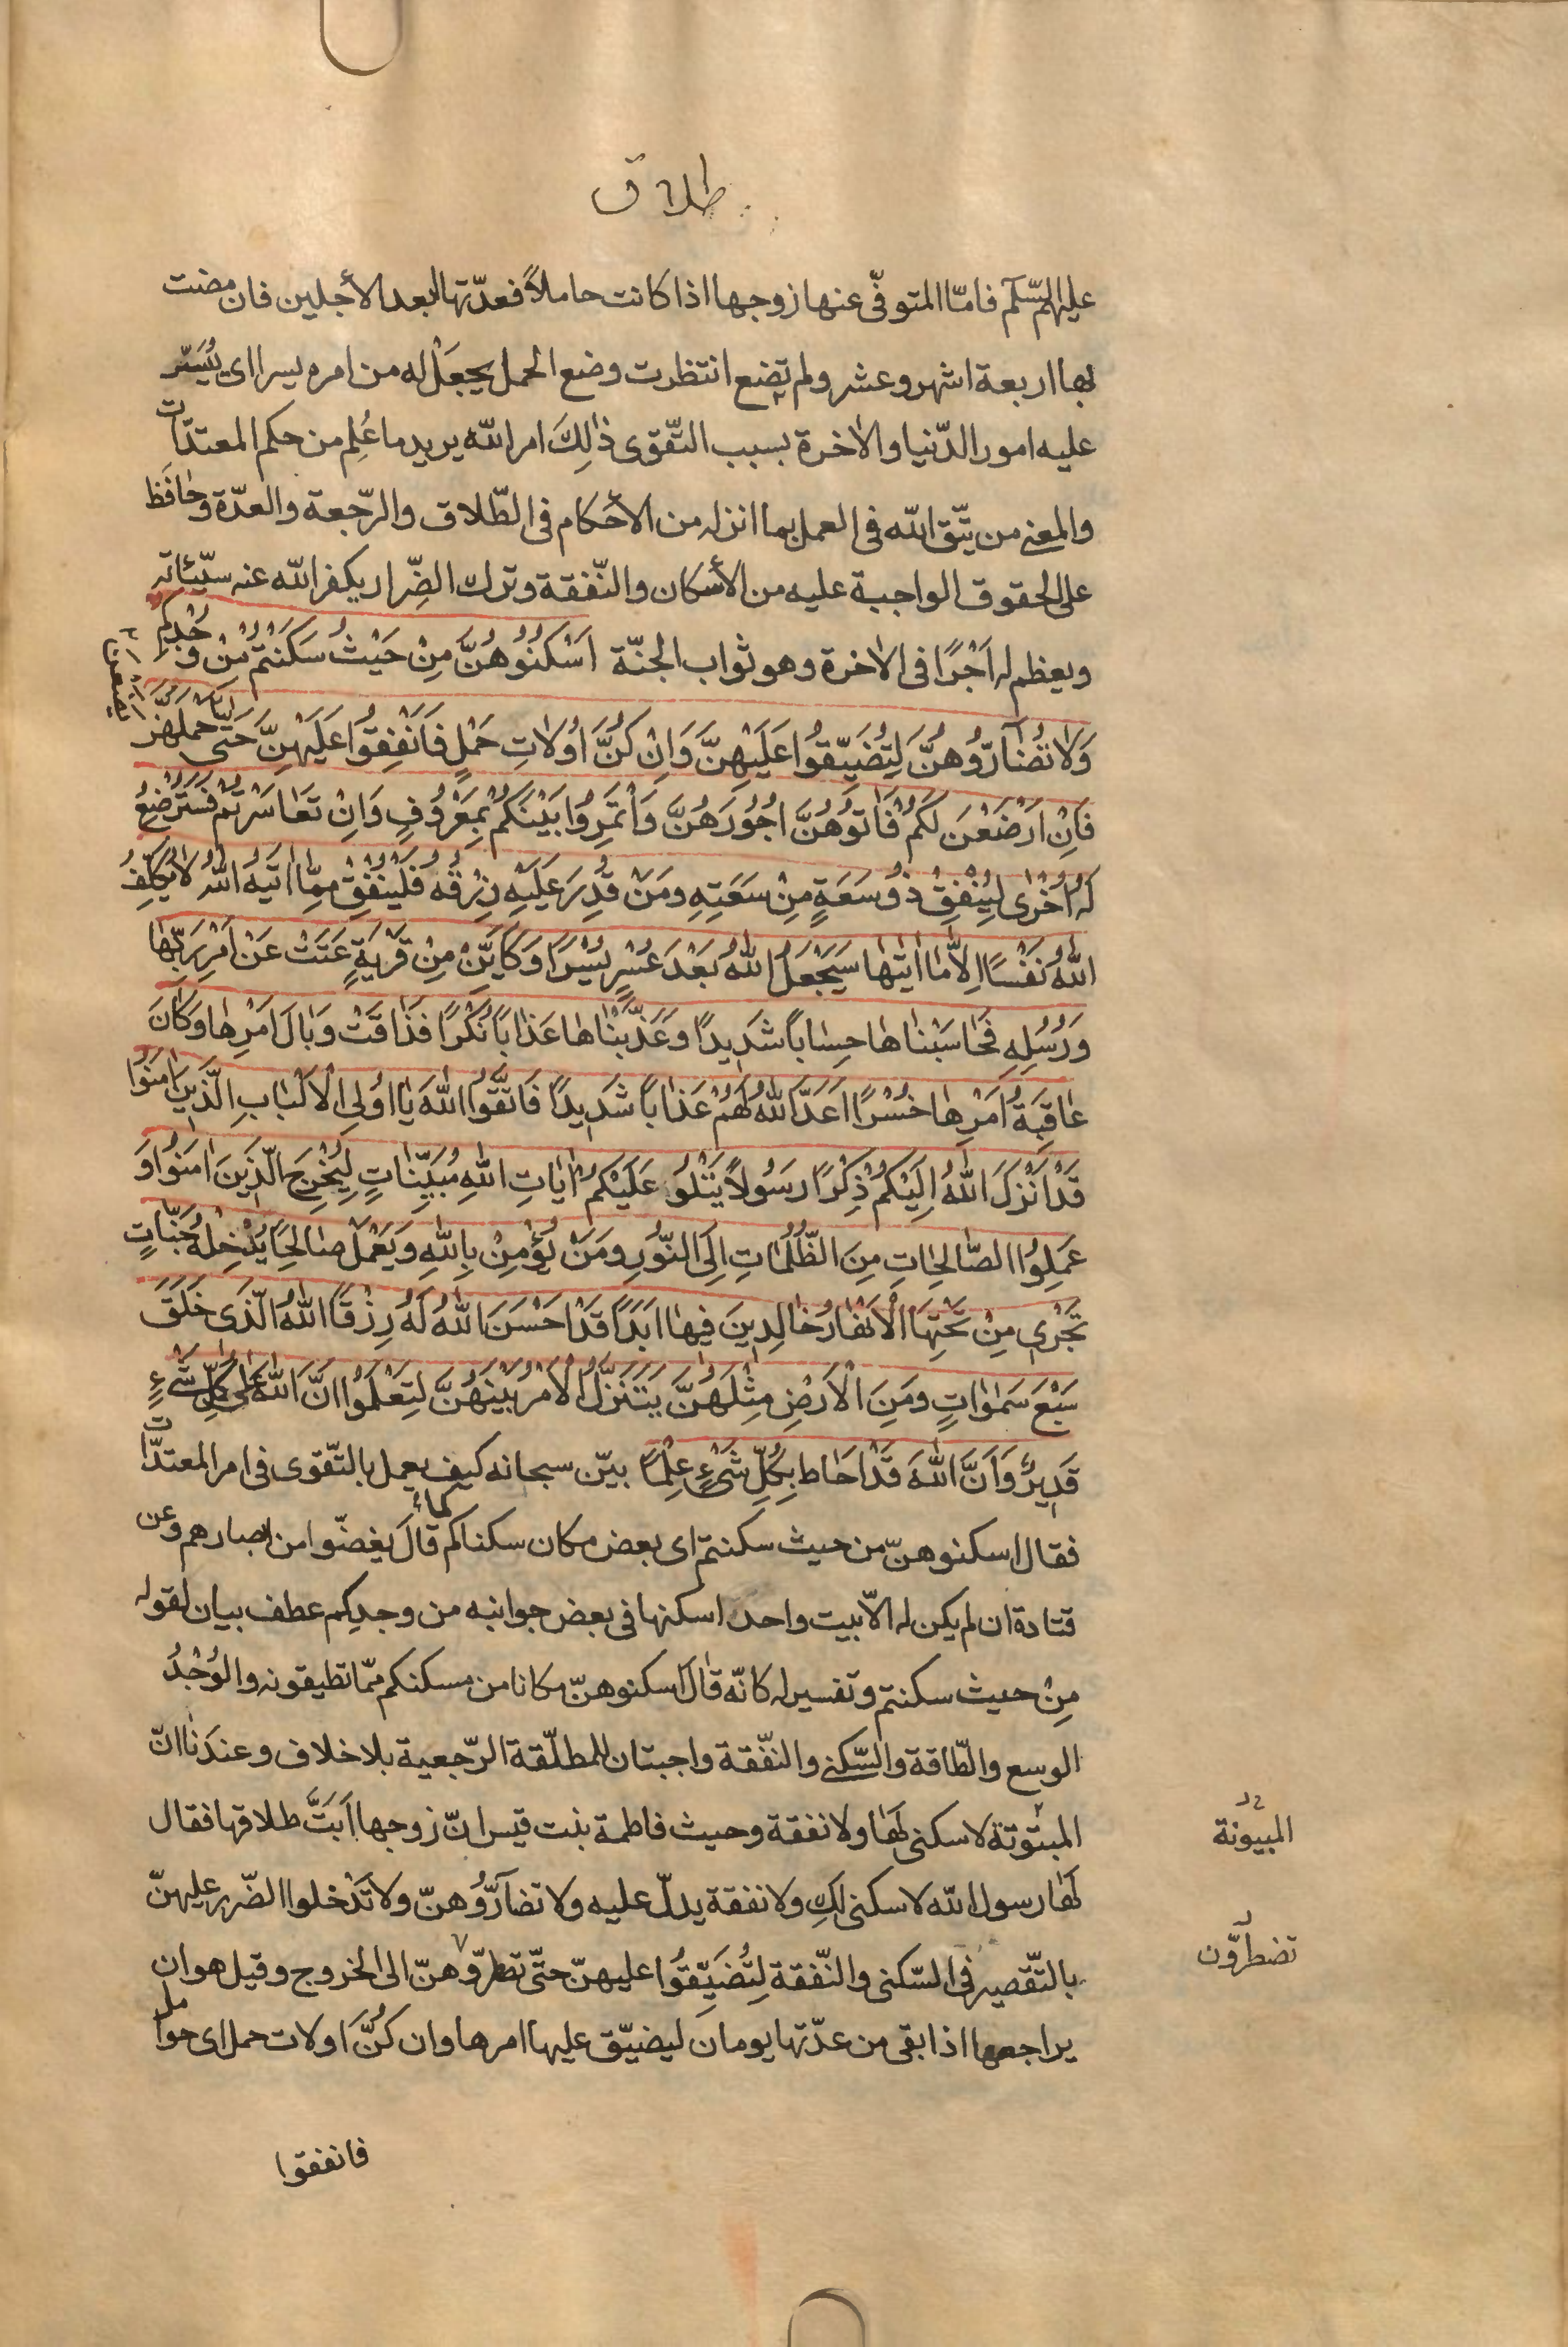 طلاق
عليهم السّلم فامّا المتوفّى عنها زوجها اذا كانت حاملاً فعدّتها ابعد الأجلين فان مضت
بها اربعة اشهر وعشر ولم تضع انتظرت وضع الحمل يجعَلْ له من امره يسرا اى يُيَسّر
عليه امور الدّنيا والاخرة بسبب التّقوى ذٰلِكَ امر اللّه يريد ما عُلِم من حكم المعتدّات
والمعنى من يتّق اللّه فى العمل بما انزله من الأحكام فى الطّلاق والرّجعة والعدّة وحافَظ
على الحقوق الواجبة عليه من الأسكان والنّفقة وترك الضِّرار يكفر اللّه عنه سيّئاته
ويعظم له اَجْرًا فى الاخرة وهو ثواب الجنّة اَسْكِنُوهُنَّ مِنْ حَيْثُ سَكَنْتُمْ مِنْ وُجْدِكُمْ
وَلَا تُضَآرُّوهُنَّ لِتُضَيِّقُوا عَلَيْهِنَّ وَاِنْ كُنَّ اُولَاتِ حَمْلٍ فَاَنْفِقُوا عَلَيْهِنَّ حَتّى يَضَعْنَ حَمْلَهُنَّ
فَاِنْ اَرْضَعْنَ لَكُمْ فَاٰتُوهُنَّ اُجُورَهُنَّ وَاْتَمِرُوا بَيْنَكُمْ بِمَعْرُوفٍ وَاِنْ تَعَاسَرْتُمْ فَسَتُرْضِعُ
لَهُ اُخْرٰى لِيُنْفِقْ ذُو سَعَةٍ مِنْ سَعَتِهِ ومَنْ قُدِرَ عَلَيْهِ رِزْقُهُ فَلْيُنْفِقْ مِمَّا اٰتٰيهُ اللّٰهُ لَا يُكَلِّفُ
اللّٰهُ نَفْسًا اِلَّا مَا اٰتٰيهٰا سَيَجْعَلُ اللّٰهُ بَعْدَ عُسْرٍ يُسْرًا وَكَاَيِّنْ مِنْ قَرْيَةٍ عَتَتْ عَنْ اَمْرِ رَبِّهٰا
وَرُسُلِهِ فَحٰاسَبْنٰاهٰا حِسٰاباً شَدِيدًا وَعَذَّبْنٰاهٰا عَذٰاباً نُكْرًا فَذٰاقَتْ وَبٰالَ اَمْرِهٰا وَكٰانَ
عٰاقِبَةُ اَمْرِهٰا خُسْرًا اَعَدَّ اللّٰهُ لَهُمْ عَذٰاباً شَدِيدًا فَاتَّقُوا اللّٰهَ يٰا اُولِى الْاَلْبٰابِ الَّذِينَ اٰمَنُوا
قَدْ اَنْزَلَ اللّٰهُ اِلَيْكُمْ ذِكْرًا رَسُولاً يَتْلُو عَلَيْكُمْ اٰيٰاتِ اللّٰهِ مُبَيِّنٰاتٍ لِيُخْرِجَ الَّذِينَ اٰمَنُوا وَ
عَمِلُوا الصّٰالِحٰاتِ مِنَ الظُّلُمٰاتِ اِلَى النُّورِ ومَنْ يُؤْمِنْ بِاللّٰهِ وَيَعْمَلْ صٰالِحًا يُدْخِلْهُ جَنّٰاتٍ
تَجْرِى مِنْ تَحْتِهَا الْاَنْهٰارُ خٰالِدِينَ فِيهٰا اَبَدًا قَدْ اَحْسَنَ اللّٰهُ لَهُ رِزْقًا اللّٰهُ الَّذِى خَلَقَ
سَبْعَ سَمٰوٰاتٍ ومِنَ الْاَرْضِ مِثْلَهُنَّ يَتَنَزَّلُ الْاَمْرُ بَيْنَهُنَّ لِتَعْلَمُوا اَنَّ اللّٰهَ عَلٰى كُلِّ شَىْءٍ
قَدِيرٌ وَاَنَّ اللّٰهَ قَدْ اَحٰاطَ بِكُلِّ شَىْءٍ عِلْمًا بيّن سبحانه كيف يعمل بالتّقوى فى امر المعتدّات
فقال اسكنوهنّ من حيث سكنتم اى بعض مكان سكناكم كما قالَ يغضّوا من ابصارهم وعن
قتادة ان لم يكن له الاّ بيت واحد اسكنها فى بعض جوانبه من وجدِكم عطف بيان لقوله
مِنْ حيث سكنتم وتفسير له كانّه قٰالَ اسكنوهنّ مكانا من مسكنكم ممّا تطيقونه والوُجْدُ
الوسع والطّاقة والسّكنى والنفّقة واجبتان للمطلّقة الرّجعية بلا خلاف وعندَنٰا انّ
المبتوتة لا سكنى لهٰا ولا نفقة وحيث فاطمة بنت قيس انّ زوجها اَبَتَّ طلاقها فقال
لهٰا رسول اللّه لا سكنى لكِ ولا نفقة يدلّ عليه ولا تضآرُّوهنّ ولا تَدْخلوا الضّرر عليهنّ
بالتّقصير فى السّكنى والنّفقة لِتُضَيِّقُوا عليهنّ حتّى تظرّوهنّ الى الخروج وقيل هو ان
يراجعها اذا بقى من عدّتها يومان ليضيّق عليها امرها وان كُنَّ اولات حمل اى حوامل
المبيونة
تضطرّون
فانفقوا